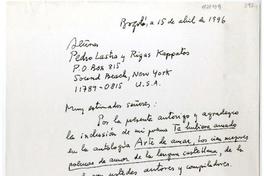 Bogotá, a 15 de abril de 1996
Señores
Pedro Lastra y Rigas Kappatos
P.O. Box 815
Sound Beach, New York
11789-0815 U.S.A.
Muy estimados señores:
Por la presente autorizo y agradezco
la inclusión de mi poema Te hubiera amado
en la antología Arte de amar. Los cien mejores
poemas de amor de la lengua castellana, de
ustedes autores y compiladores.